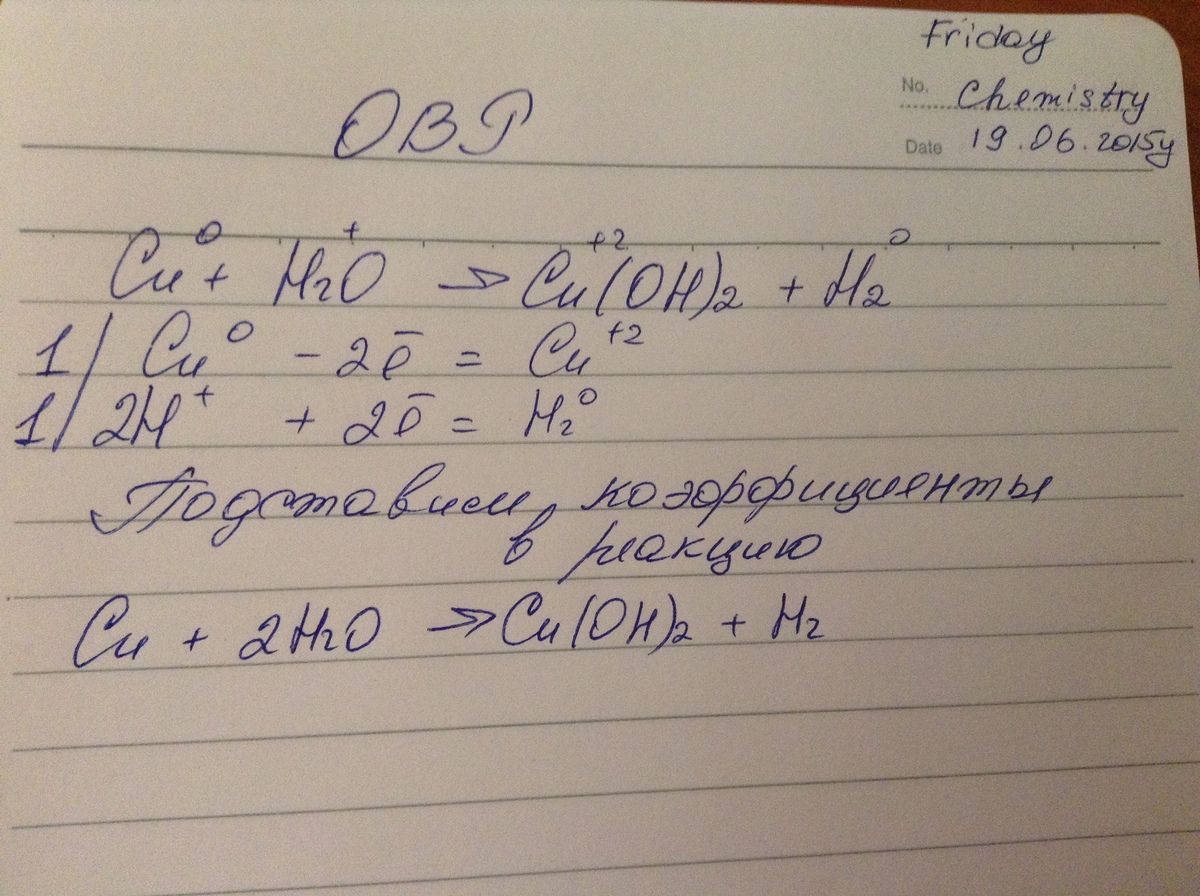 Friday
No. Chemistry
Date 19.06.2015y
ОВР
Cu⁰ + H₂⁺O → Cu⁺²(OH)₂ + H₂⁰
1/ Cu⁰ - 2ē = Cu⁺²
1/ 2H⁺ + 2ē = H₂⁰
Подставим коэффициенты
в реакцию
Cu + 2H₂O → Cu(OH)₂ + H₂